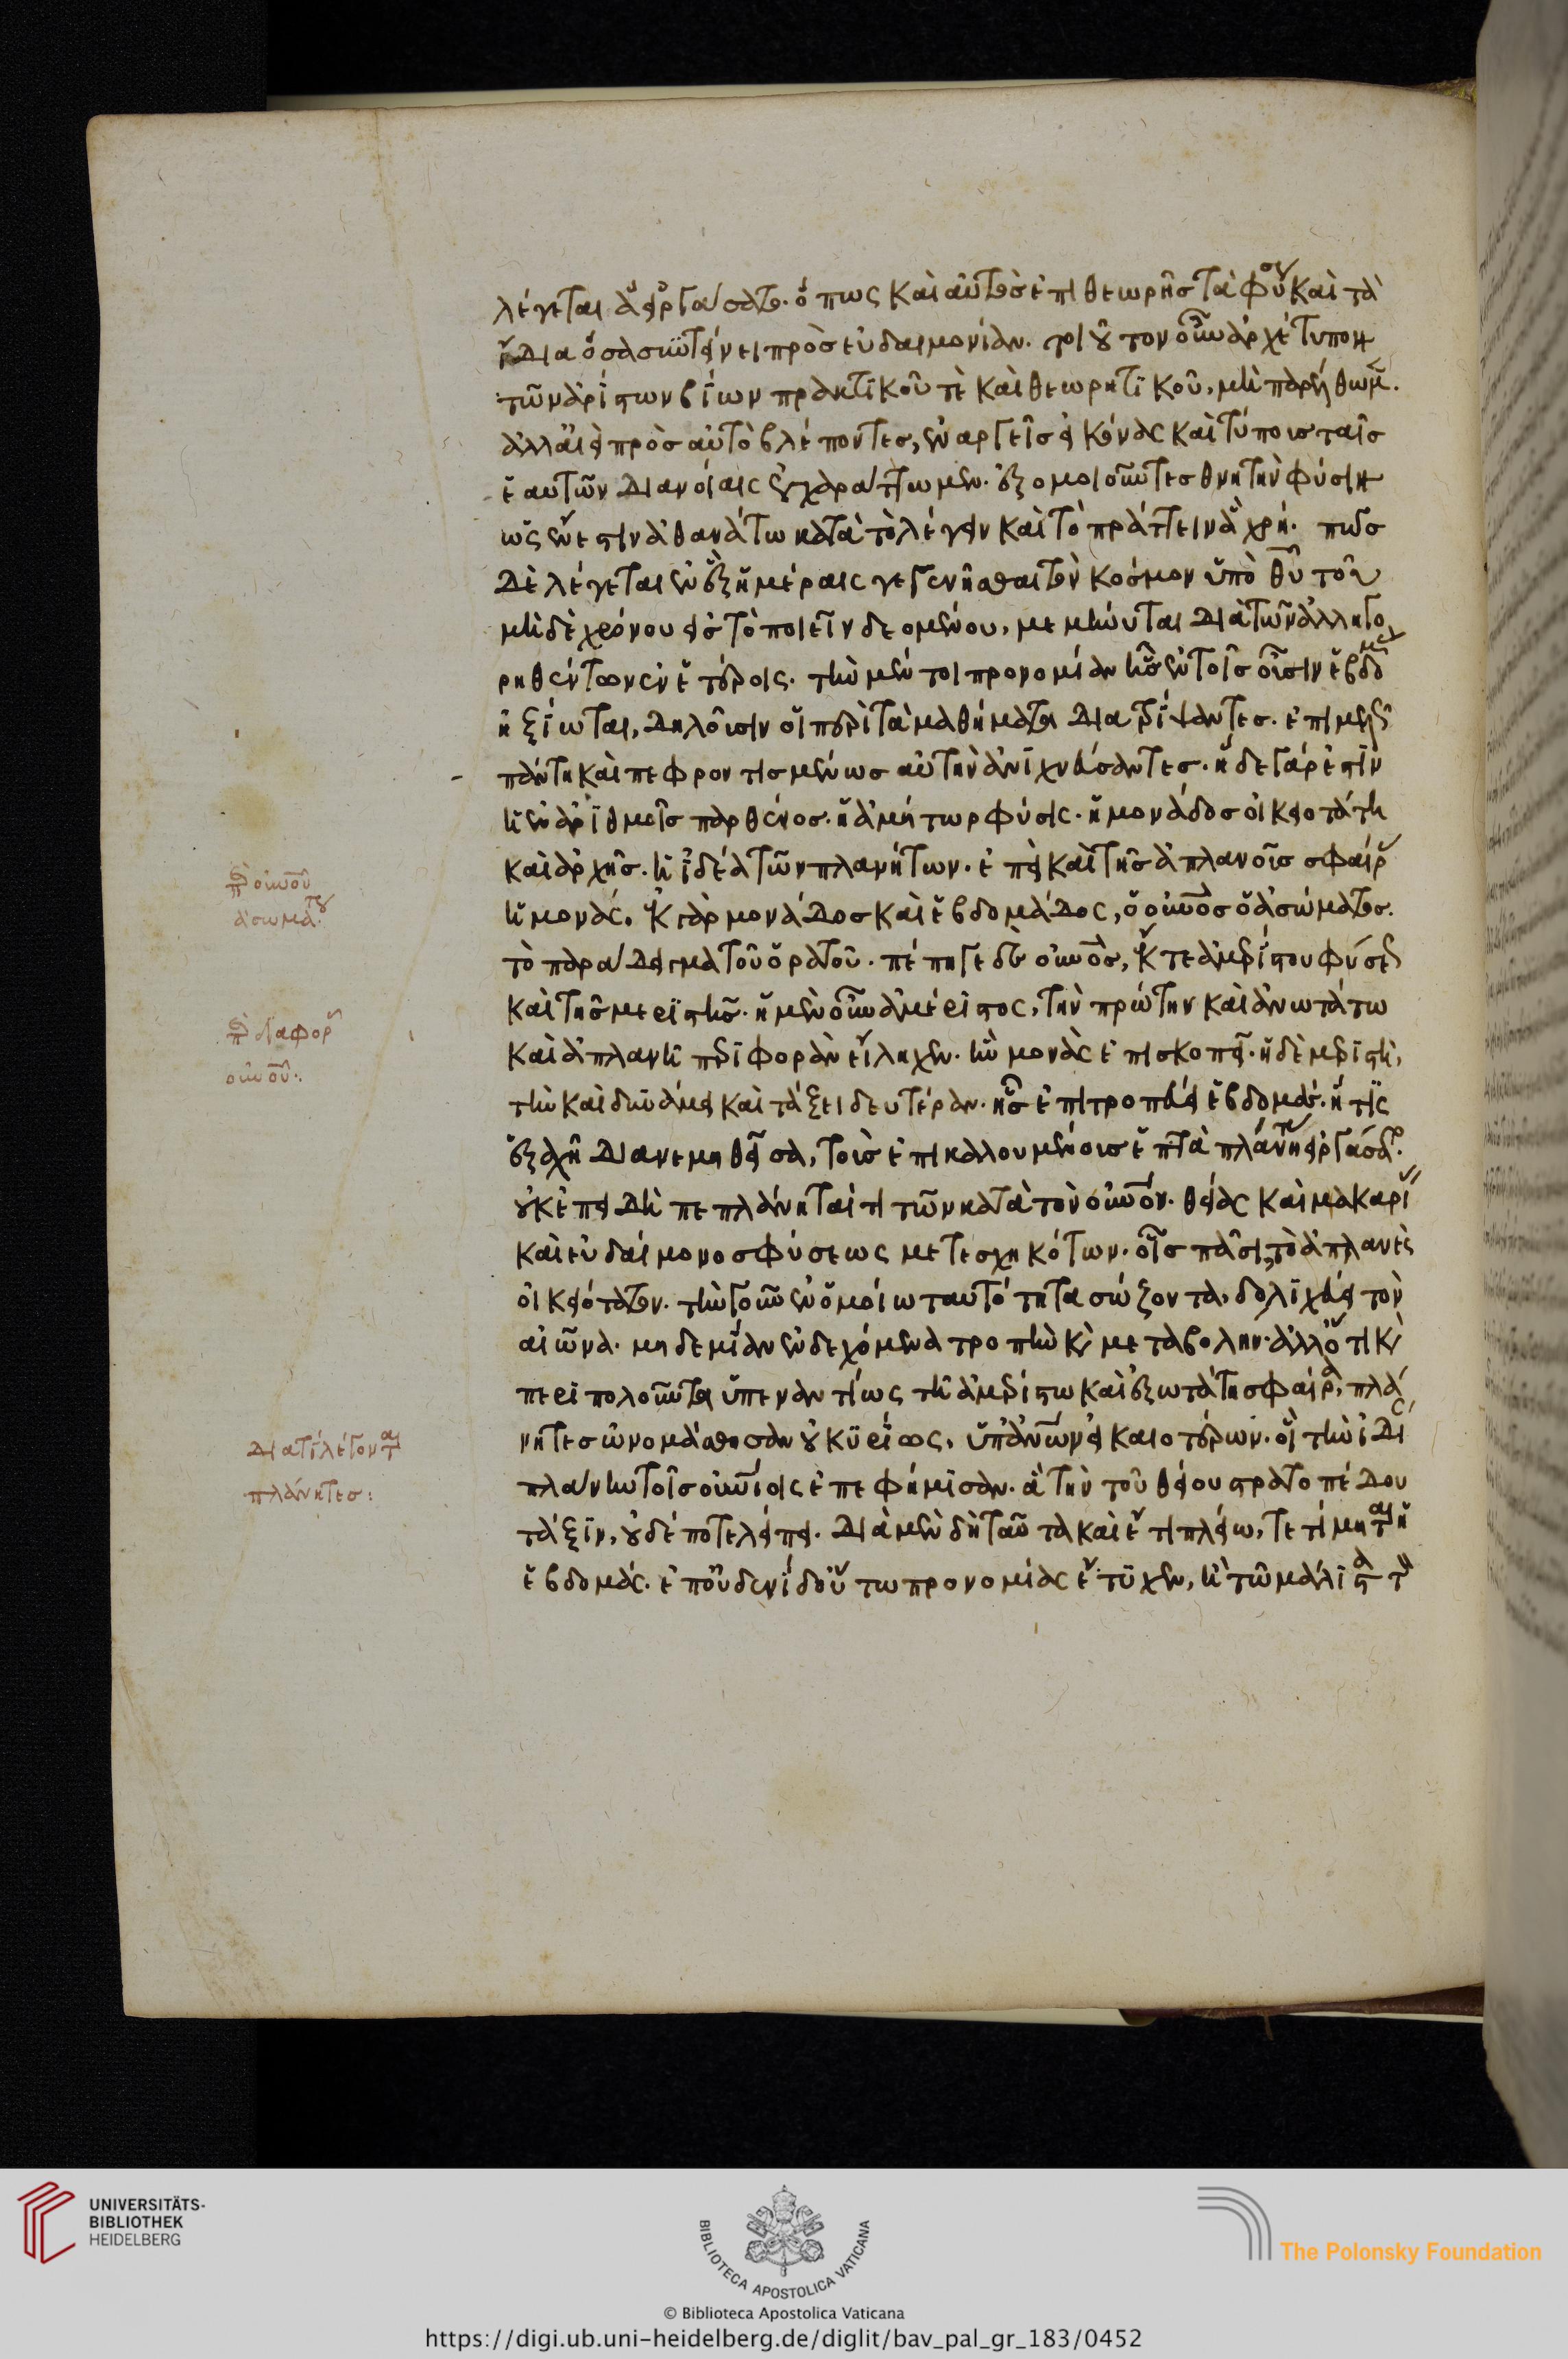 λέγεται ἃ εἰργάσατο. ὅπως καὶ αὐτὸς ἐπιθεωρῆς τὰ φύσεως καὶ τὰ
ἴδια ὅσα συντείνει πρὸς εὐδαιμονίαν. τοιοῦτον οὖν ἀρχέτυπον
τῶν ἀρίστων βίων πρακτικοῦ τὲ καὶ θεωρητικοῦ, μὴ παρέλθωμεν.
ἀλλ' ἀεὶ πρὸς αὐτὸ βλέποντες, ἐναργεῖς εἰκόνας καὶ τύποις ταῖς
ἑαυτῶν διανοίαις ἐγχαράττωμεν. ἐξομοιοῦντες θνητὴν φύσιν
ὡς ἔνεστιν ἀθανάτω κατὰ τὸ λέγειν καὶ τὸ πράττειν ἃ χρή. πῶς
δὲ λέγεται ἐν ἓξ ἡμέραις γεγενῆσθαι τὸν κόσμον ὑπὸ θυ τοῦ
μὴ δὲ χρόνου εἰς τὸ ποιεῖν δεομένου, μεμήνυται διὰ τῶν ἀλληγο
ρηθέντων ἐν ἑτέροις. τὴν μέντοι προνομίαν ἧς ἐν τοῖς οὖσιν ἑβδομὰς
ἠξίωται, δηλοῦσιν οἱ περὶ τὰ μαθήματα διατρίψαντες. ἐπιμελῶς
πάντη καὶ πεφροντισμένως αὐτὴν ἀνιχνεύσαντες. ἥδε γάρ ἐστιν
ἡ ἐν ἀριθμοῖς παρθένος. ἡ ἀμήτωρ φύσις. ἡ μονάδος οἰκειοτάτη
καὶ ἀρχῆς. ἡ ἰδέα τῶν πλανήτων. ἐπεὶ καὶ τῆς ἀπλανοῦς σφαίρας
ἡ μονάς. ἐκ γὰρ μονάδος καὶ ἑβδομάδος, ὁ οὐνος ὁ ἀσώματος.
τὸ παράδειγμα τοῦ ὁρατοῦ. πέπηγε δὲ οὐνος, ἔκ τε ἀμερίστου φύσεως
καὶ τῆς μεριστῆς. ἡ μὲν οὖν ἀμέριστος, τὴν πρώτην καὶ ἀνωτάτω
καὶ ἀπλανῆ περιφορὰν εἴληχεν. ἣν μονὰς ἐπισκοπεῖ. ἡ δὲ μεριστὴ,
τὴν καὶ δυνάμει καὶ τάξει δευτέραν. ἧς ἐπιτροπεύει ἑβδομάς. ἥτις
ἑξαχῆ διανεμηθεῖσα, τοὺς ἐπικαλουμένους ἑπτὰ πλάνητας εἰργάσατο.
οὐκ ἐπειδὴ πεπλάνηταί τι τῶν κατὰ τὸν οὐνον. θείας καὶ μακαρίας
καὶ εὐδαίμονος φύσεως μετεσχηκότων. οἷς πᾶσι, τὸ ἀπλανὲς
οἰκειότατον. τὴν γοῦν ἐν ὁμοίω ταυτότητα σώζοντα, δολιχεύει τὸν
αἰῶνα. μηδεμίαν ἐνδεχόμενα τροπὴν καὶ μεταβολήν. ἀλλ' ὅτι καὶ
περιπολοῦντα ὑπεναντίως τῆ ἀμερίστω καὶ ἐξωτάτη σφαίρα, πλά
νητες ὠνομάσθησαν οὐ κυρίως, ὑπ' ἀνων εἰκαιοτέρων. οἳ τὴν ἰδί
πλάνην τοῖς οὐνίοις ἐπεφήμισαν. ἃ τὴν τοῦ θείου στρατοπέδου
τάξιν, οὐδέποτε λείπει. διὰ μὲν δὴ ταῦτα καὶ ἔτι πλείω, τετίμηται ἡ
ἑβδομάς. ἐπ' οὐδενὶ δ' οὕτω προνομίας ἔτυχεν, ἢ τῶ μάλιστα τὸν
περὶ οὐνοῦ
ἀσωμάτου
περὶ διαφορᾶς
οὐνοῦ:
διατί λέγονται
πλάνητες:
UNIVERSITÄTS-
BIBLIOTHEK
HEIDELBERG
BIBLIOTECA APOSTOLICA VATICANA
The Polonsky Foundation
© Biblioteca Apostolica Vaticana
https://digi.ub.uni-heidelberg.de/diglit/bav_pal_gr_183/0452